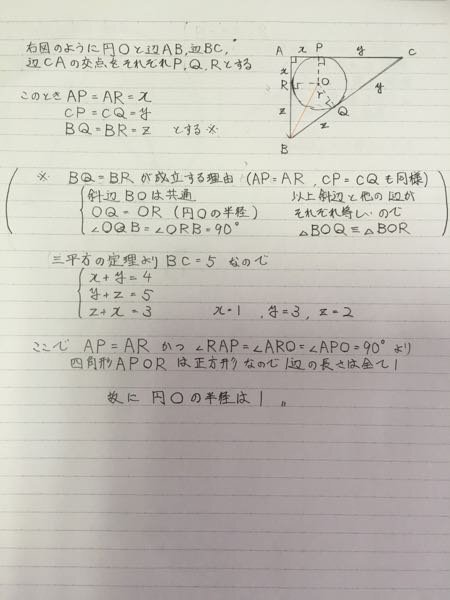 右図のように円Oと辺AB,辺BC,
辺CAの交点をそれぞれP,Q,Rとする
A x P y C
x
R O y
r
Q
z
z
B
このとき AP=AR=x
CP=CQ=y
BQ=BR=z とする※
※ BQ=BRが成立する理由 (AP=AR, CP=CQも同様)
斜辺BOは共通
OQ=OR (円Oの半径)
∠OQB=∠ORB=90°
以上斜辺と他の1辺が
それぞれ等しいので
△BOQ≡△BOR
三平方の定理よりBC=5なので
x+y=4
y+z=5
z+x=3 x=1, y=3, z=2
ここで AP=AR かつ ∠RAP=∠ARO=∠APO=90°より
四角形APORは正方形なので1辺の長さは全て1
故に 円Oの半径は 1 〃